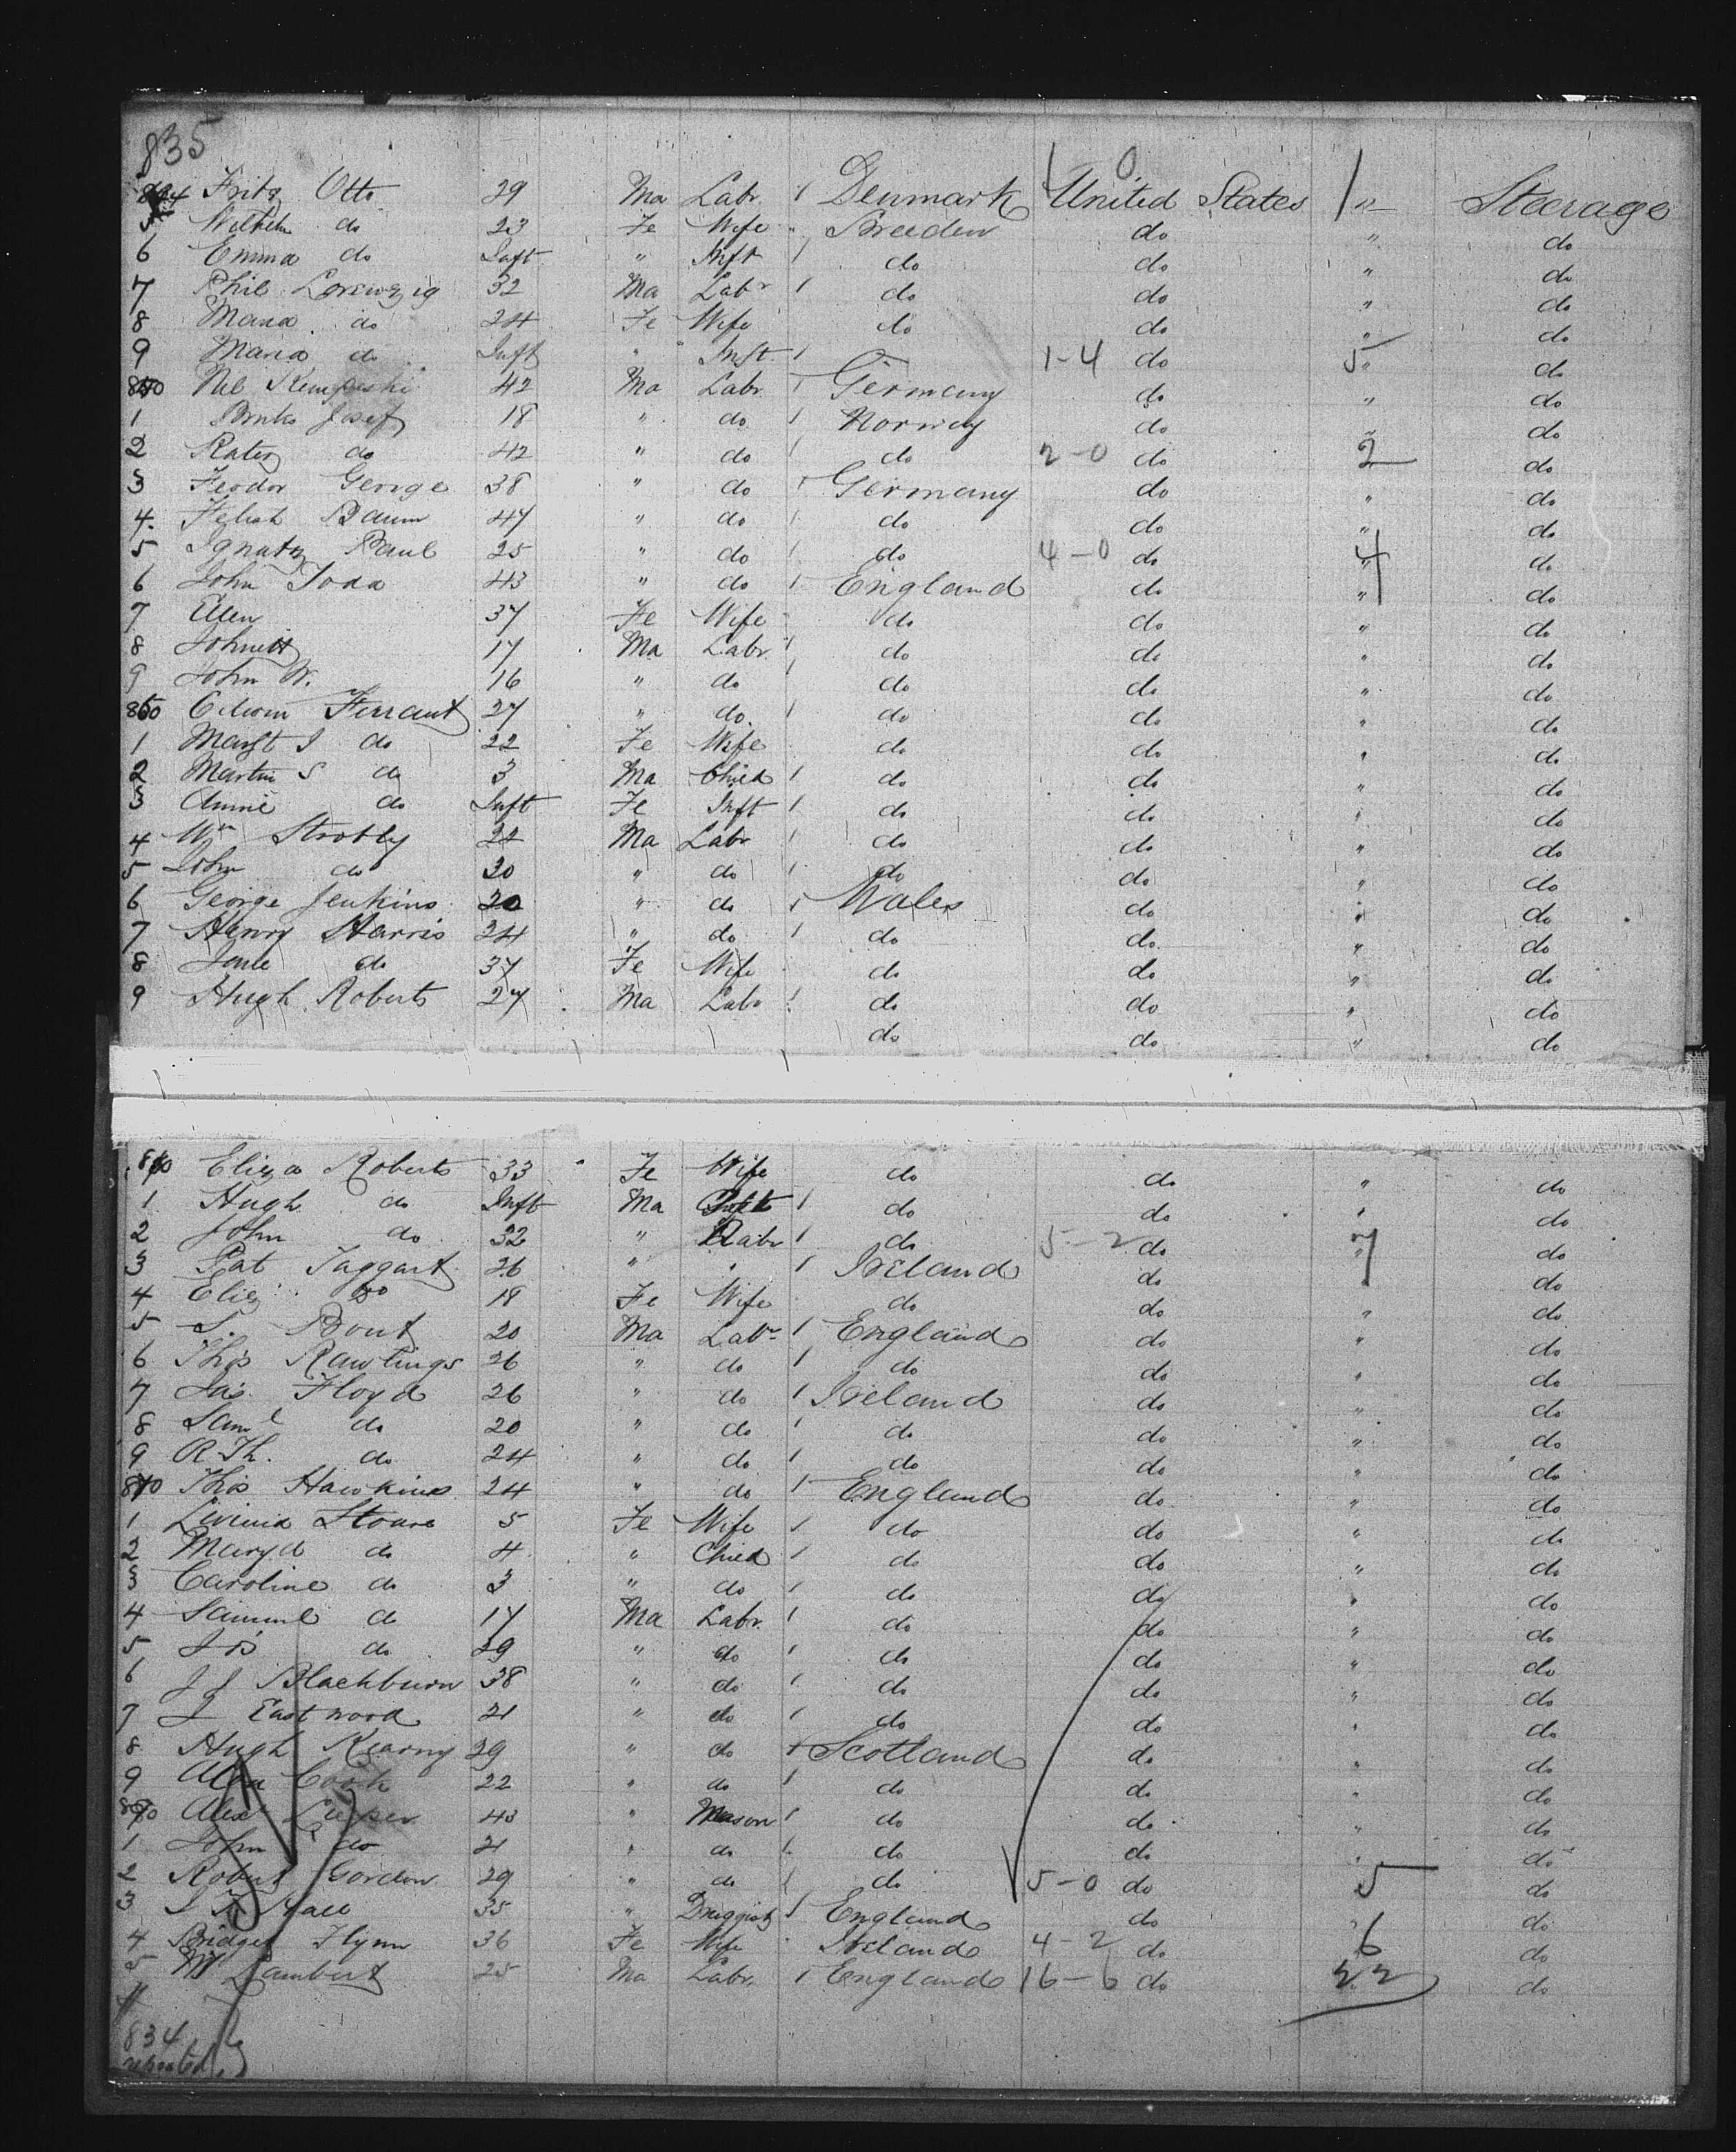 835
834 Fritz Otto 29 Ma Labr / Denmark United States / " Steerage
5 Wilhelm do 23 Fe Wife " Sweden do " do
6 Emma do Inft " Inft / do do " do
7 Phil 32 Ma Labr / do do " do
8 Maria do 24 Fe Wife do do " do
9 Maria do Inft " Inft / do 1-4 do 5 " do
840 42 Ma Labr / Germany do " do
1 Josef 18 " do / Norway do " do
2 do 42 " do / do 2-0 do 2 do
3 Feodor George 38 " do / Germany do " do
4 Baum 47 " do / do do " do
5 Ignatz Paul 25 " do / do 4-0 do 4 " do
6 John 43 " do / England do " do
7 Ellen 37 Fe Wife do do " do
8 17 Ma Labr / do do " do
9 John W. 16 " do / do do " do
850 Edwin Ferrant 27 " do / do do " do
1 Margt J do 22 Fe Wife do do " do
2 Martin S do 3 Ma Child / do do " do
3 Annie do Inft Fe Inft / do do " do
4 Wm 22 Ma Labr / do do " do
5 John do 20 " do / do do " do
6 George Jenkins 20 " do / Wales do " do
7 Henry Harris 24 " do / do do " do
8 Jane do 37 Fe Wife do do " do
9 Hugh Roberts 27 Ma Labr / do do " do
do do " do
860 Eliza Roberts 33 Fe Wife do do " do
1 Hugh do Inft Ma Inft / do do " do
2 John do 32 " Labr / do 5-2 do 7 " do
3 Pat Taggart 26 " " / Ireland do do
4 Eliz do 18 Fe Wife do do " do
5 S. Bout 20 Ma Labr / England do " do
6 Thos Rawlings 26 " do / do do " do
7 Jas. Floyd 26 " do / Ireland do " do
8 Saml do 20 " do / do do " do
9 R Th. do 24 " do / do do " do
870 Thos Hawkins 24 " do / England do " do
1 5 Fe Wife / do do " do
2 Mary A do 4 " Child / do do " do
3 Caroline do 3 " do / do do " do
4 Samuel do 17 Ma Labr. / do do " do
5 Jos do 29 " do / do do " do
6 J J Blackburn 38 " do / do do " do
7 J Eastwood 21 " do / do do " do
8 Hugh Kearny 29 " do / Scotland do " do
9 Alex Cook 22 " do / do do " do
880 Alex 43 " Mason / do do " do
1 John do 21 " do / do do " do
2 Robert Gordon 29 " do / do 5-0 do 5 do
3 Hall 35 " Druggist / England do " do
4 Bridget Flynn 36 Fe Wife Ireland 4-2 do 6 do
5 Lambert 25 Ma Labr. / England 16-6 do 22 do
834
repeated